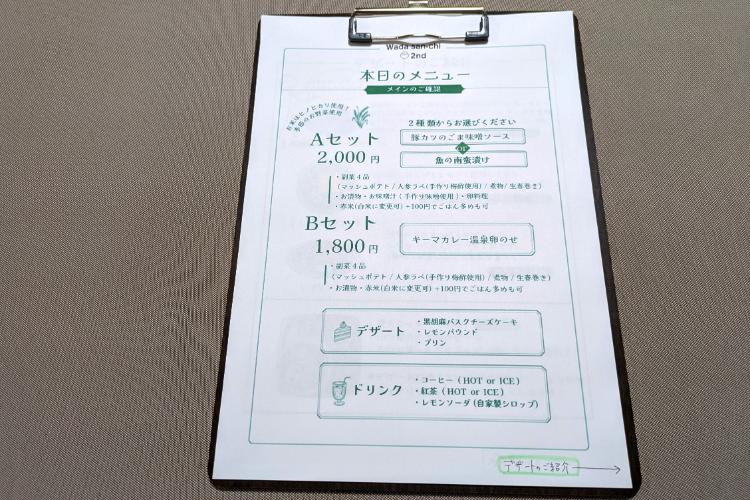 Wada sen-chi
2nd
本日のメニュー
メインのご確認
お米はヒノヒカリ使用!
季節のお野菜使用
Aセット
2,000 円
2種類からお選びください
豚カツのごま味噌ソース
or
魚の南蛮漬け
・副菜4品
(マッシュポテト / 人参ラペ(手作り梅酢使用) / 煮物 / 生春巻き)
・お漬物・お味噌汁(手作り味噌使用)・卵料理
・赤米(白米に変更可) +100円でごはん多めも可
Bセット
1,800 円
キーマカレー温泉卵のせ
・副菜4品
(マッシュポテト / 人参ラペ(手作り梅酢使用) / 煮物 / 生春巻き)
・お漬物・赤米(白米に変更可) +100円でごはん多めも可
デザート
・黒胡麻バスクチーズケーキ
・レモンパウンド
・プリン
ドリンク
・コーヒー (HOT or ICE)
・紅茶 (HOT or ICE)
・レモンソーダ (自家製シロップ)
デザートのご紹介 →